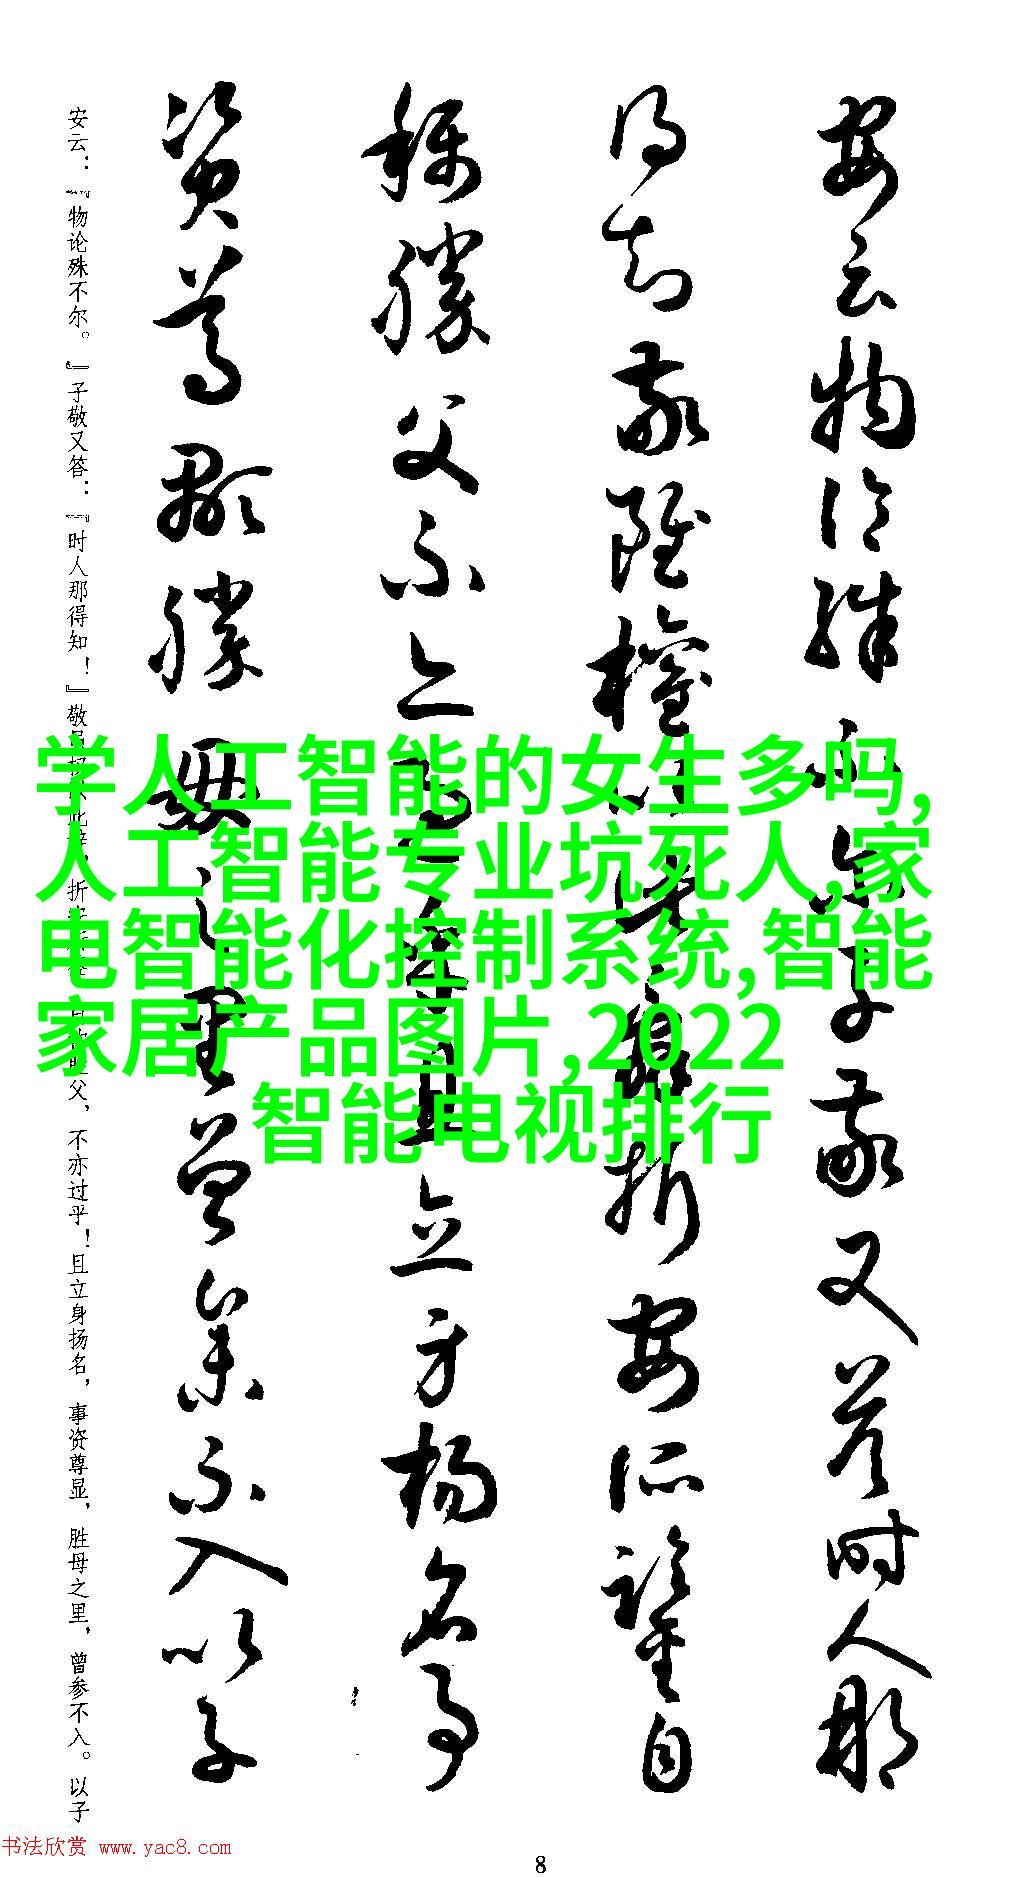 安云物论殊不尔子敬又答时人那
得知敬虽权以此辞折安所鉴自
称胜父不亦过乎且立身扬名事
资尊显胜母之里曾参不入以子
安云：『物论殊不尔。』子敬又答：『时人那得知！』敬虽权以此辞，折安所鉴，自称胜父，不亦过乎！且立身扬名，事资尊显，胜母之里，曾参不入。以子
学人工智能的女生多吗,
人工智能专业坑死人,家
电智能化控制系统,智能
家居产品图片,2022
智能电视排行
书法欣赏 www.yac8.com
8